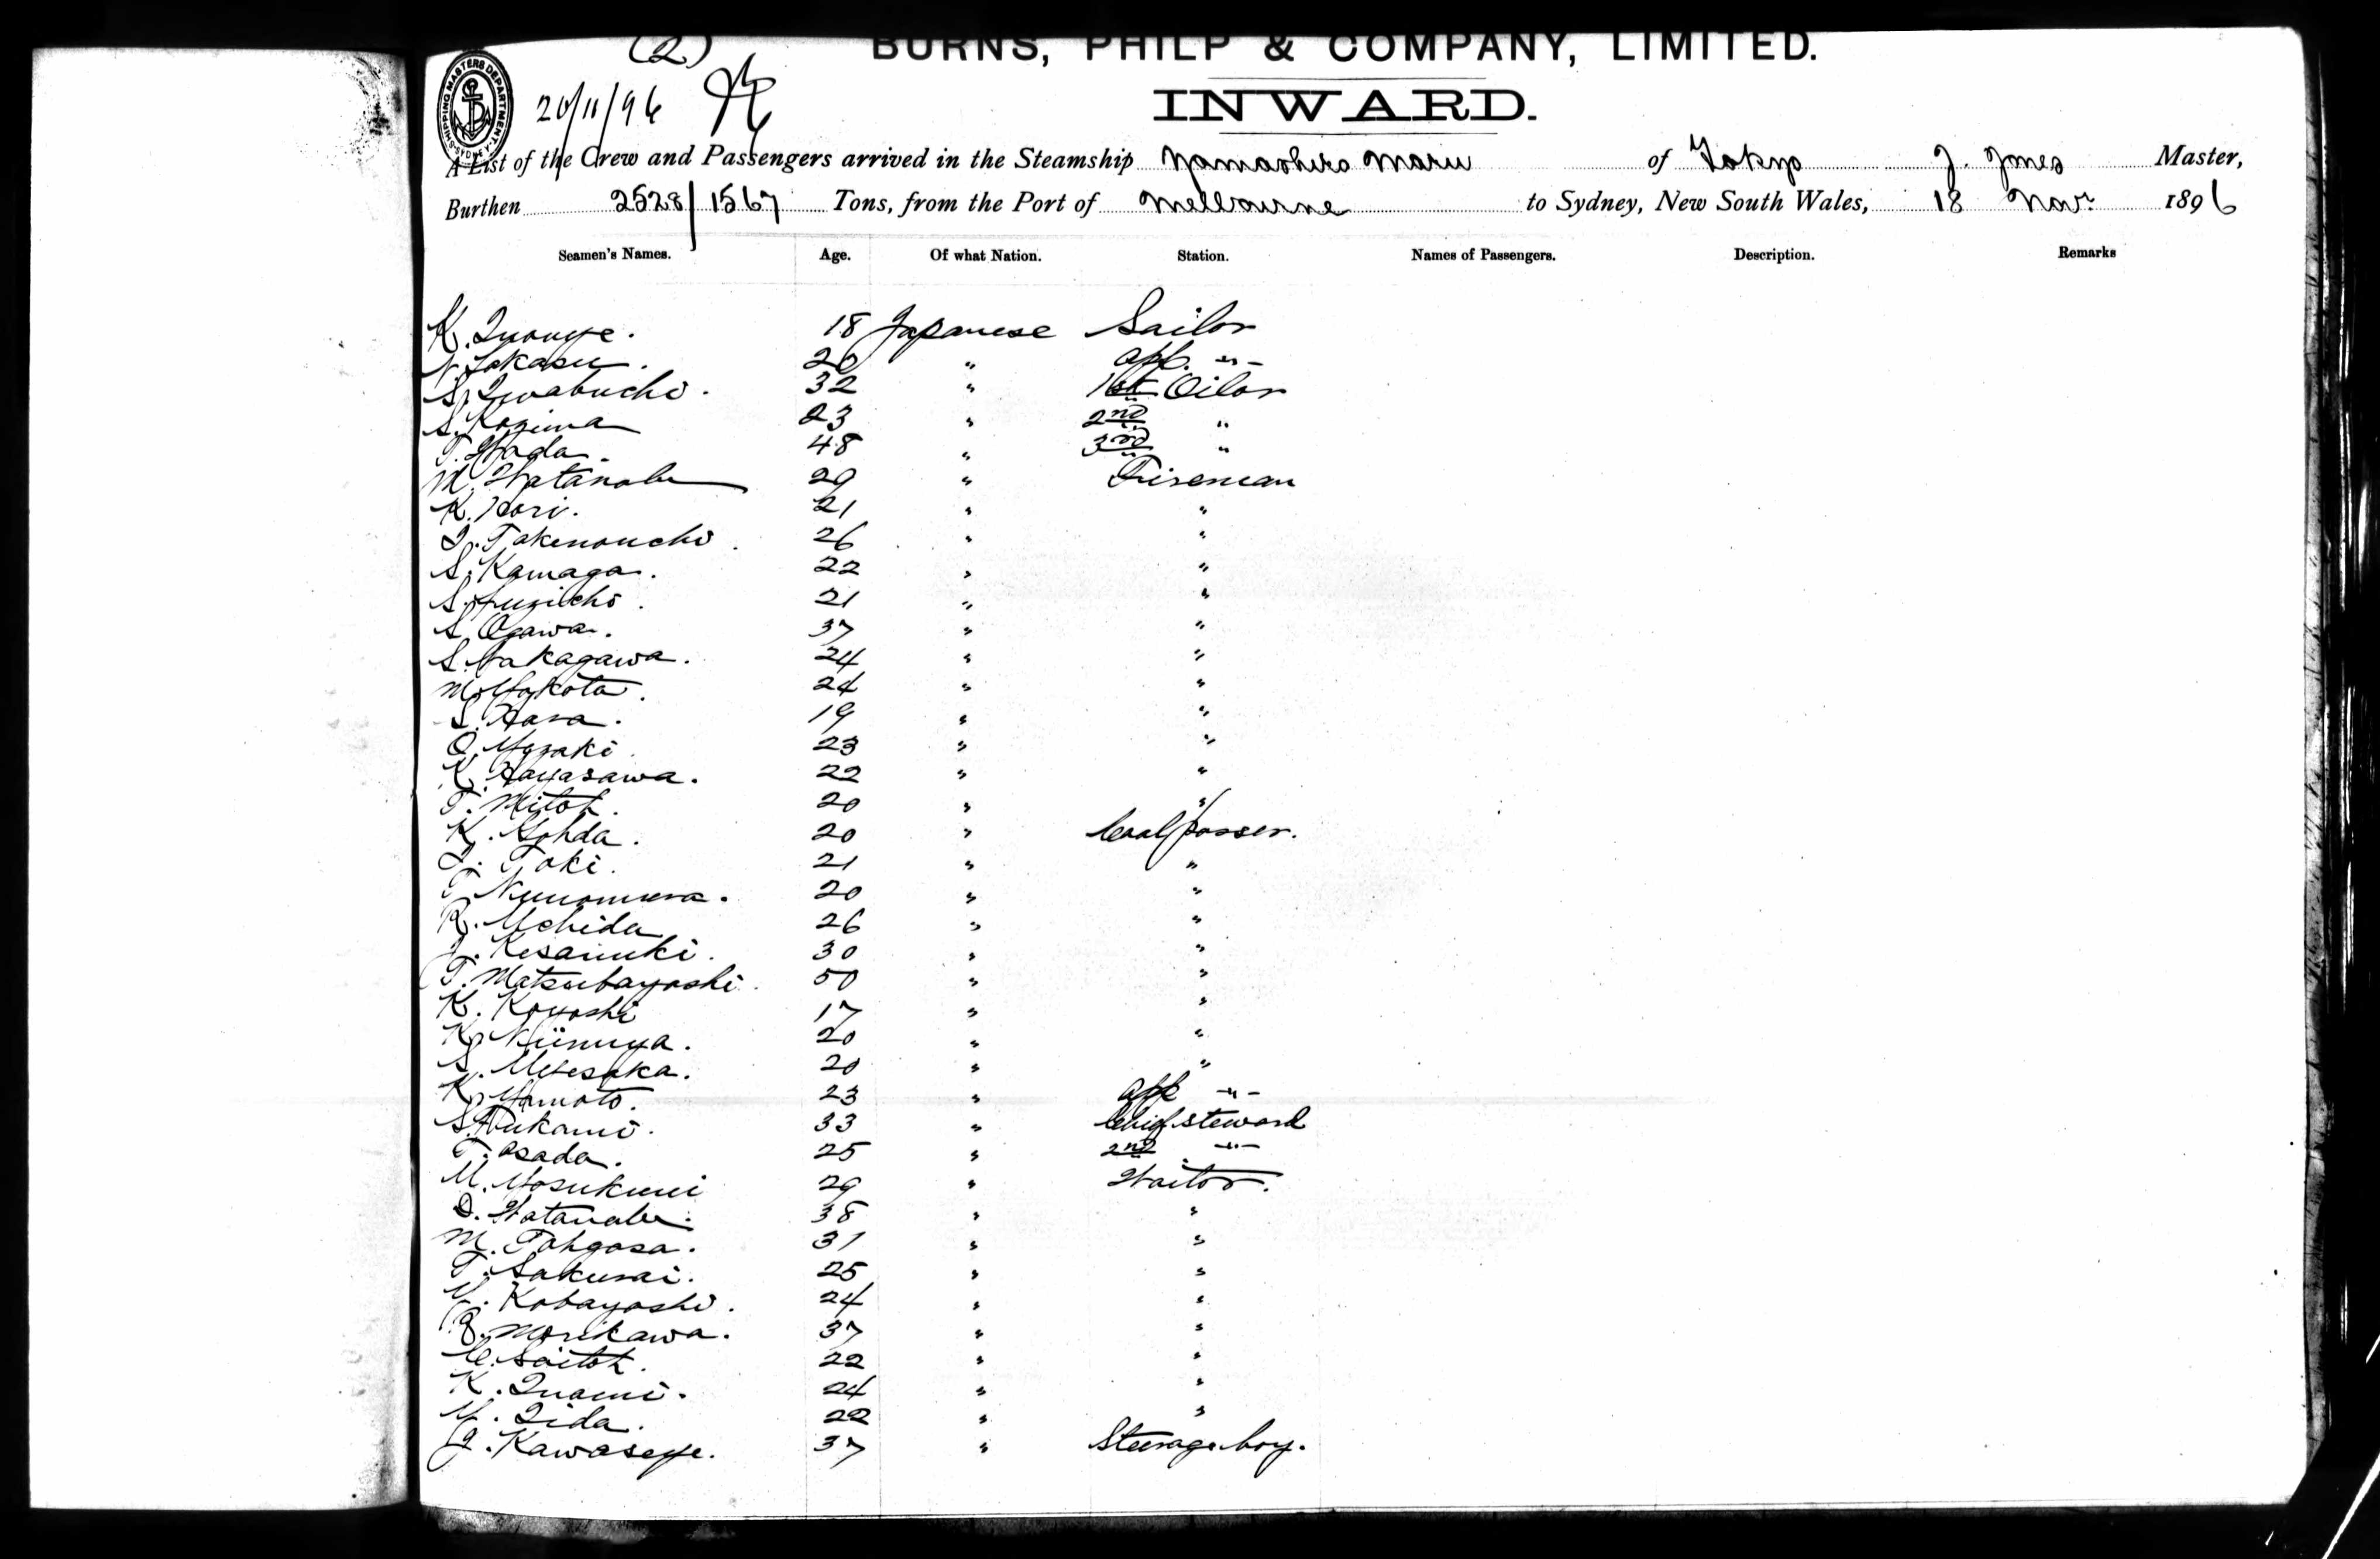 (2) BURNS, PHILP & COMPANY, LIMITED.
SHIPPING MASTERS DEPARTMENT SYDNEY
20/11/96
INWARD.
A List of the Crew and Passengers arrived in the Steamship Yamashiro Maru of Tokyo J. Jones Master,
Burthen 2528/1567 Tons, from the Port of Melbourne to Sydney, New South Wales, 18 Novr. 1896
Seamen's Names. Age. Of what Nation. Station. Names of Passengers. Description. Remarks
K. Inouye. 18 Japanese Sailor
N. Takasu. 20 " app. -"-
S. Iwabuchi. 32 " 1st Oiler
S. Kozima 23 " 2nd "
T. Wada. 48 " 3rd "
M. Watanabe 29 " Fireman
K. Hori. 21 " "
I. Takenouchi. 26 " "
S. Kamaga. 22 " "
S. 21 " "
S. Ogawa. 37 " "
S. Nakagawa. 24 " "
M. Yokota. 24 " "
S. Hara. 19 " "
O. 23 " "
K. Hayasawa. 22 " "
T. Mitoh. 20 " "
K. Gohda. 20 " Coal passer.
Toki. 21 " "
T. Nunomura. 20 " "
R. Uchida 26 " "
Kesanuki. 30 " "
T. Matsubayashi. 50 " "
K. Koyoshi 17 " "
K. Niinuya. 20 " "
S. Uyesaka. 20 " "
K. Yamoto. 23 " app -"-
S. Fukami. 33 " Chief steward
T. Asada. 25 " 2nd -"-
M. Yosukuni 29 " Waiter.
D. Watanabe. 38 " "
M. Tohgasa. 31 " "
T. Sakurai. 25 " "
Y. Kobayashi. 24 " "
Morikawa. 37 " "
C. Saitoh. 22 " "
K. Inami. 24 " "
Y. Iida. 22 " "
J. Kawaseye. 37 " Steerage boy.